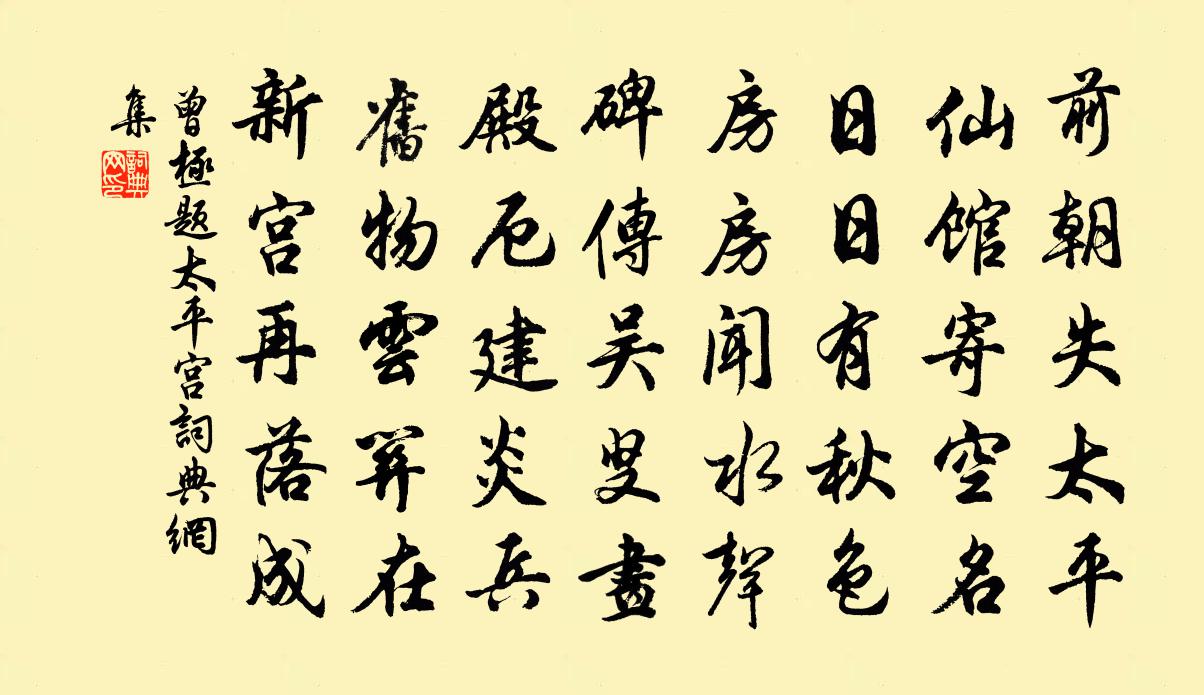 前朝失太平
仙館寄空名
日日有秋色
房房聞水聲
碑傳吴叟畫
殿厄建炎兵
舊物雲關在
新宫再落成
曾極题太平宫詞典網
集
詞典
网印